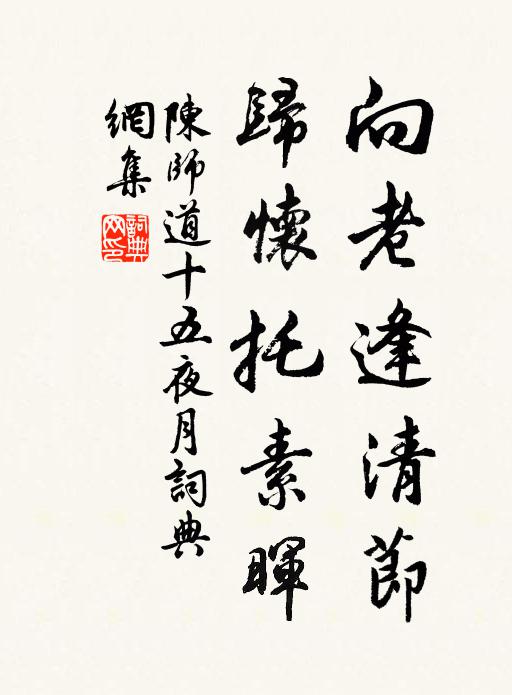 向老逢清節
歸懷托素暉
陳師道十五夜月詞典
網集
詞典
網印